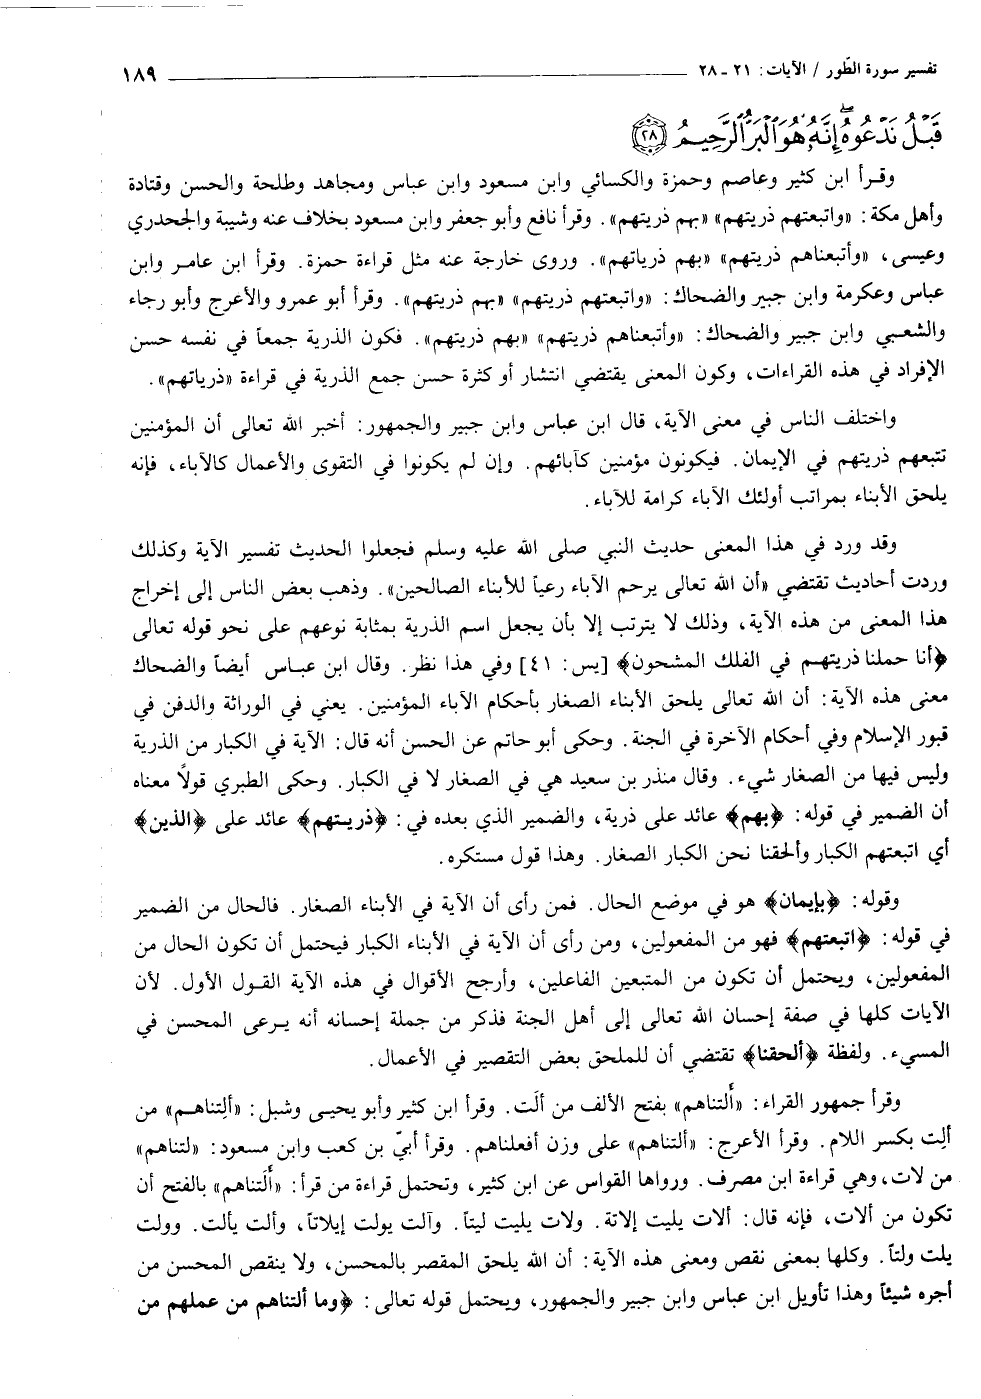 تفسير سورة الطّور / الآيات: ٢١ - ٢٨ ١٨٩
قَبْلُ نَدْعُوهُ إِنَّهُ هُوَ الْبَرُّ الرَّحِيمُ ﴿٢٨﴾
وقـرأ ابن كثير وعاصم وحمزة والكسائي وابن مسعود وابن عباس ومجاهد وطلحة والحسن وقتادة
وأهل مكة: «واتبعتهم ذريتهم» «بهم ذريتهم». وقرأ نافع وأبو جعفر وابن مسعود بخلاف عنه وشيبة والجحدري
وعيسى، «وأتبعناهم ذريتهم» «بهم ذرياتهم». وروى خارجة عنه مثل قراءة حمزة. وقرأ ابن عامـر وابن
عباس وعكرمة وابن جبير والضحاك: «واتبعتهم ذريتهم» «بهم ذريتهم». وقرأ أبو عمرو والأعرج وأبو رجاء
والشعـبي وابن جبير والضحاك: «وأتبعناهم ذريتهم» «بهم ذريتهم». فكون الذرية جمعاً في نفسه حسن
الإفراد في هذه القراءات، وكون المعنى يقتضي انتشار أو كثرة حسن جمع الذرية في قراءة «ذرياتهم».
واختلف الناس في معنى الآية، قال ابن عباس وابن جبير والجمهور: أخبر الله تعالى أن المؤمنين
تتبعهم ذريتهم في الإيمان. فيكونون مؤمنين كآبائهم. وإن لم يكونوا في التقوى والأعمال كالآباء، فإنه
يلحق الأبناء بمراتب أولئك الآباء كرامة للآباء.
وقد ورد في هذا المعنى حديث النبي صلى الله عليه وسلم فجعلوا الحديث تفسير الآية وكذلك
وردت أحاديث تقتضي «أن الله تعالى يرحم الآباء رعياً للأبناء الصالحين». وذهب بعض الناس إلى إخراج
هذا المعنى من هذه الآية، وذلك لا يترتب إلا بأن يجعل اسم الذرية بمثابة نوعهم على نحو قوله تعالى
﴿أنا حملنا ذريتهـم في الفلك المشحون﴾ [يس: ٤١] وفي هذا نظر. وقال ابن عبـاس أيضاً والضحاك
معنى هذه الآية: أن الله تعالى يلحق الأبناء الصغار بأحكام الآباء المؤمنين. يعني في الوراثة والدفن في
قبور الإسلام وفي أحكام الآخرة في الجنة. وحكى أبو حاتم عن الحسن أنه قال: الآية في الكبار من الذرية
وليس فيها من الصغار شيء. وقال منذر بن سعيد هي في الصغار لا في الكبار. وحكى الطبري قولاً معناه
أن الضمير في قوله: ﴿بهم﴾ عائد على ذرية، والضمير الذي بعده في: ﴿ذريـتهم﴾ عائد على ﴿الذين﴾
أي اتبعتهم الكبار وألحقنا نحن الكبار الصغار. وهذا قول مستكره.
وقوله: ﴿بإيمان﴾ هو في موضع الحال. فمن رأى أن الآية في الأبناء الصغار. فالحال من الضمير
في قوله: ﴿اتبعتهم﴾ فهو من المفعولين، ومن رأى أن الآية في الأبناء الكبار فيحتمل أن تكون الحال من
المفعولين، ويحتمل أن تكون من المتبعين الفاعلين، وأرجح الأقوال في هذه الآية القـول الأول. لأن
الآيات كلها في صفة إحسان الله تعالى إلى أهل الجنة فذكر من جملة إحسانه أنه يـرعى المحسن في
المسيء. ولفظة ﴿ألحقنا﴾ تقتضي أن للملحق بعض التقصير في الأعمال.
وقرأ جمهور القراء: «أَلتناهم» بفتح الألف من ألَت. وقرأ ابن كثير وأبو يحيـى وشبل: «ألِتناهـم» من
ألِت بكسر اللام. وقرأ الأعرج: «ألتناهم» على وزن أفعلناهم. وقرأ أبيّ بن كعب وابن مسعود: «لتناهم»
من لات، وهي قراءة ابن مصرف. ورواها القواس عن ابن كثير، وتحتمل قراءة من قرأ: «أَلَتناهم» بالفتح أن
تكون من ألات، فإنه قال: ألات يليت إلاتة. ولات يليت ليتاً. وآلت يولت إيلاتاً، وألت يألت. وولت
يلت ولتاً. وكلها بمعنى نقص ومعنى هذه الآية: أن الله يلحق المقصر بالمحسن، ولا ينقص المحسن من
أجره شيئاً وهذا تأويل ابن عباس وابن جبير والجمهور، ويحتمل قوله تعالى: ﴿وما ألتناهم من عملهم من